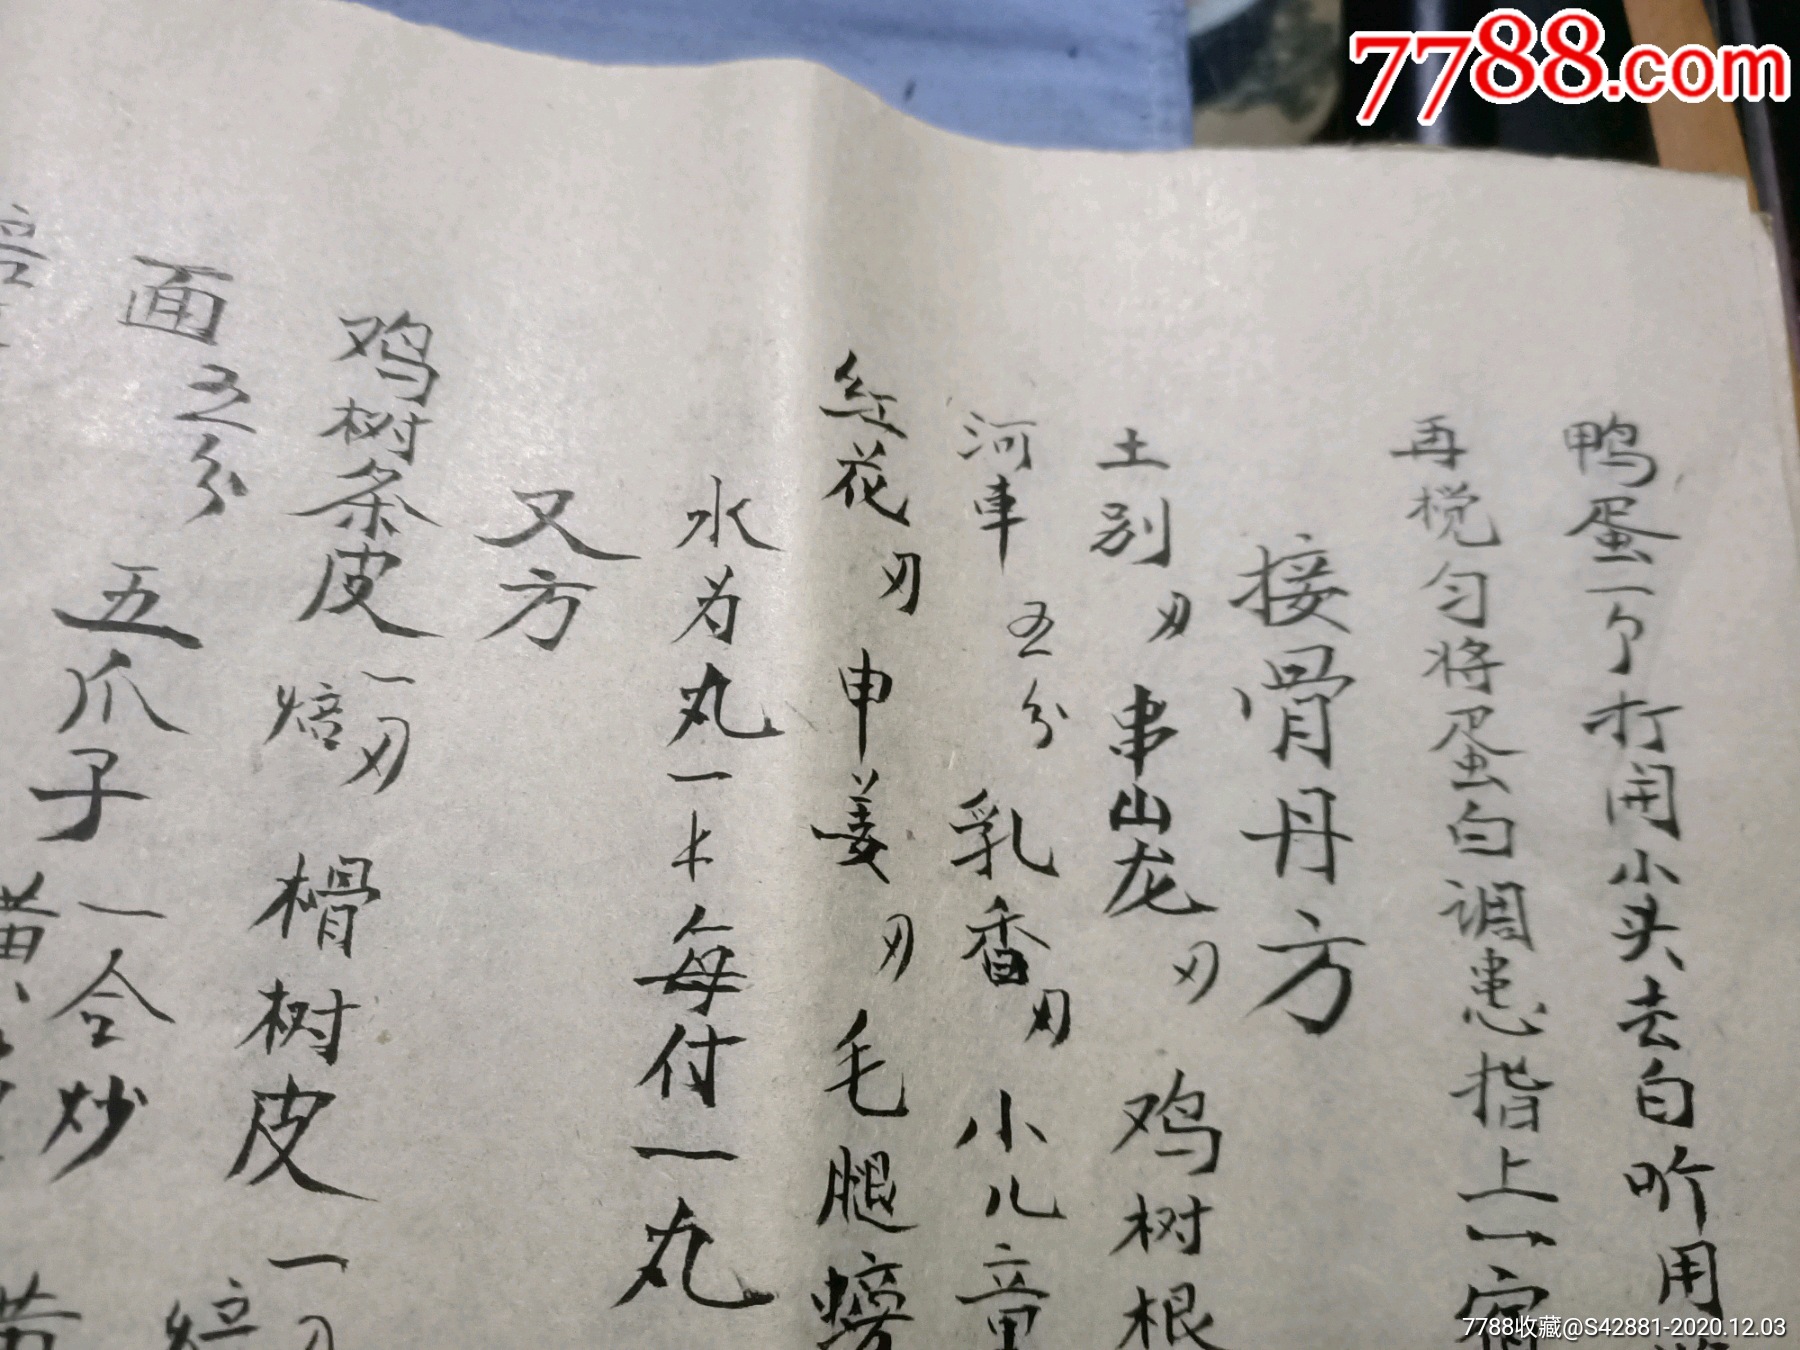 7788.com
鸭蛋一个打开小头去白听用
再搅匀将蛋白调患指上一宿
接骨丹方
土别刃串山龙刃鸡树根
河車五分乳香刃小儿童
红花刃申姜刃毛腿螃
水为丸一上每付一丸
又方
鸡树条皮一刃焙榾树皮一刃
面五分五爪子一合炒
7788收藏@S42881-2020.12.03